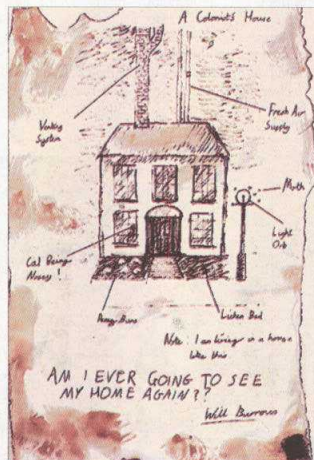 A Colonist's House
Venting
System
Fresh Air
Supply
Moth
Light
Orb
Cal Being
Nosey!
Lichen Bed
Note: I am living in a house
like this
AM I EVER GOING TO SEE
MY HOME AGAIN??
Will Burrows